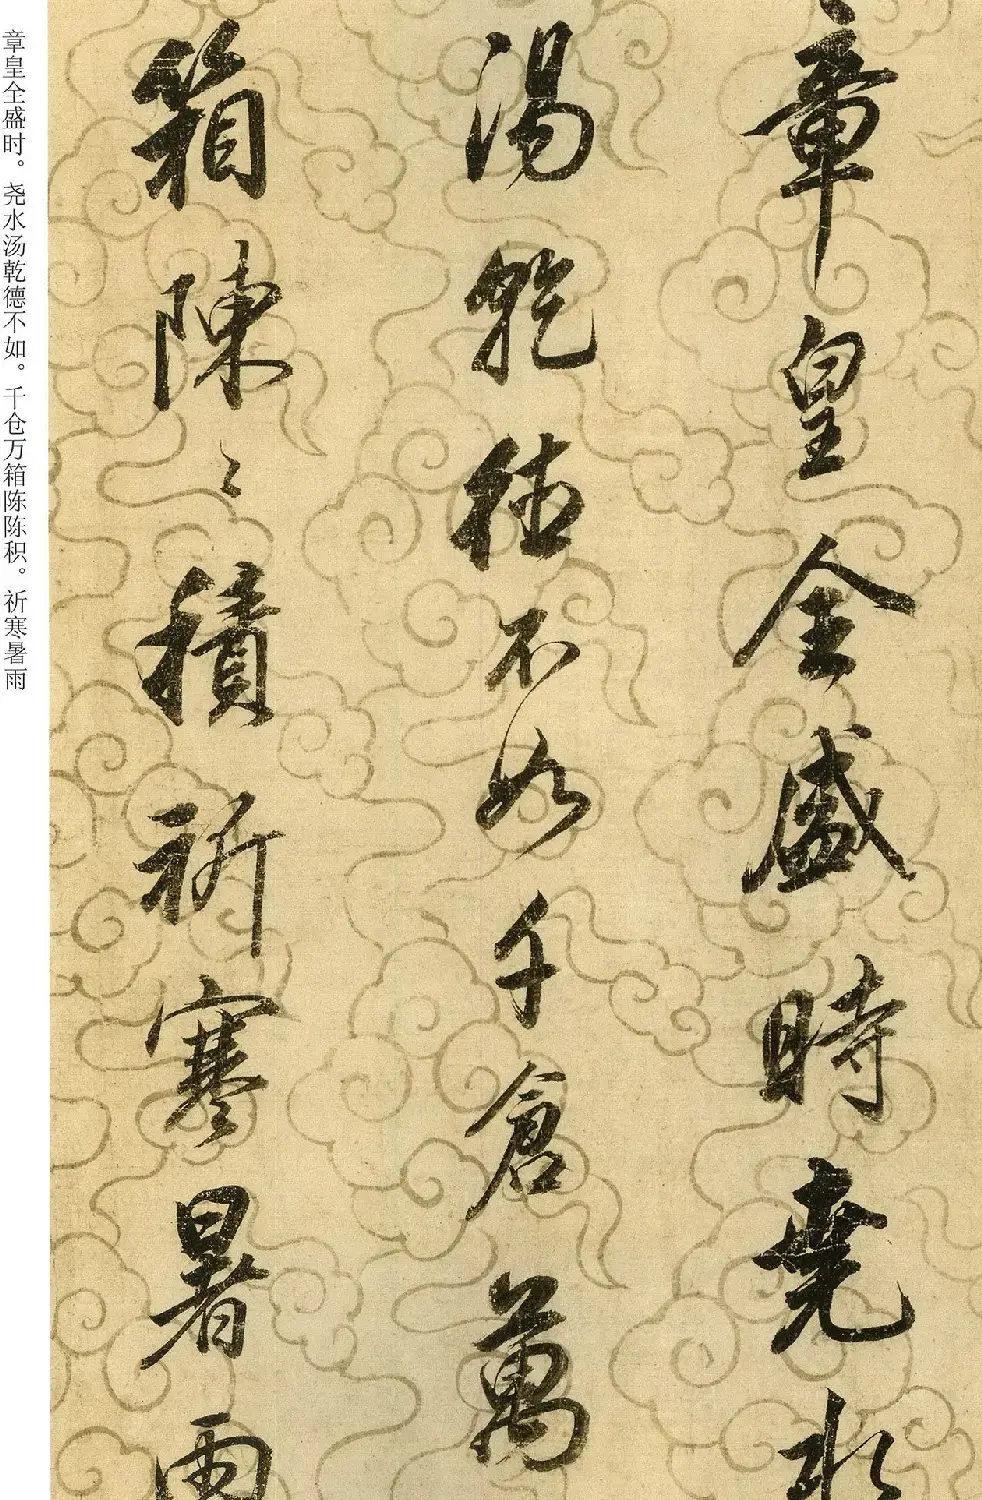 章皇全盛時堯水
湯乾徳不如千倉萬
箱陳〻積祈寒暑雨
章皇全盛时。尧水汤乾德不如。千仓万箱陈陈积。祈寒暑雨